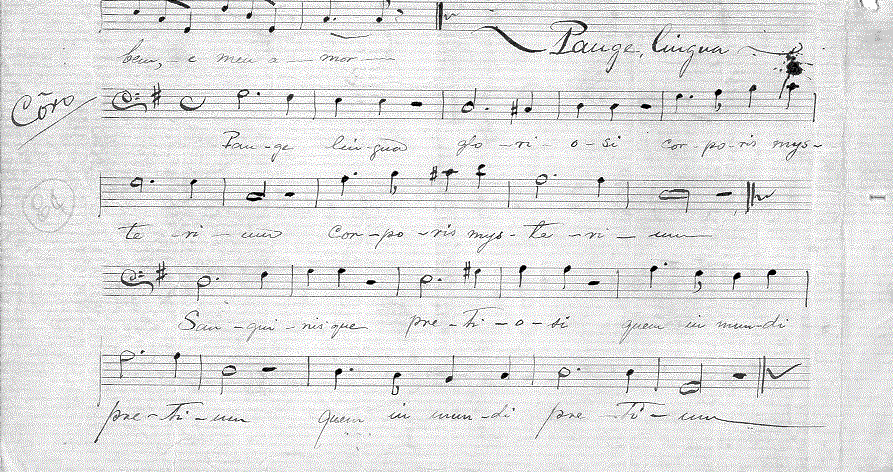 bem, e meu a - mor
Pange, lingua
Côro
Pan-ge lin-gua glo-ri-o-si cor-po-ris mys-
te-ri-um cor-po-ris mys-te-ri-um
San-gui-nisque pre-ti-o-si quem in mun-di
pre-ti-um quem in mun-di pre-ti-um